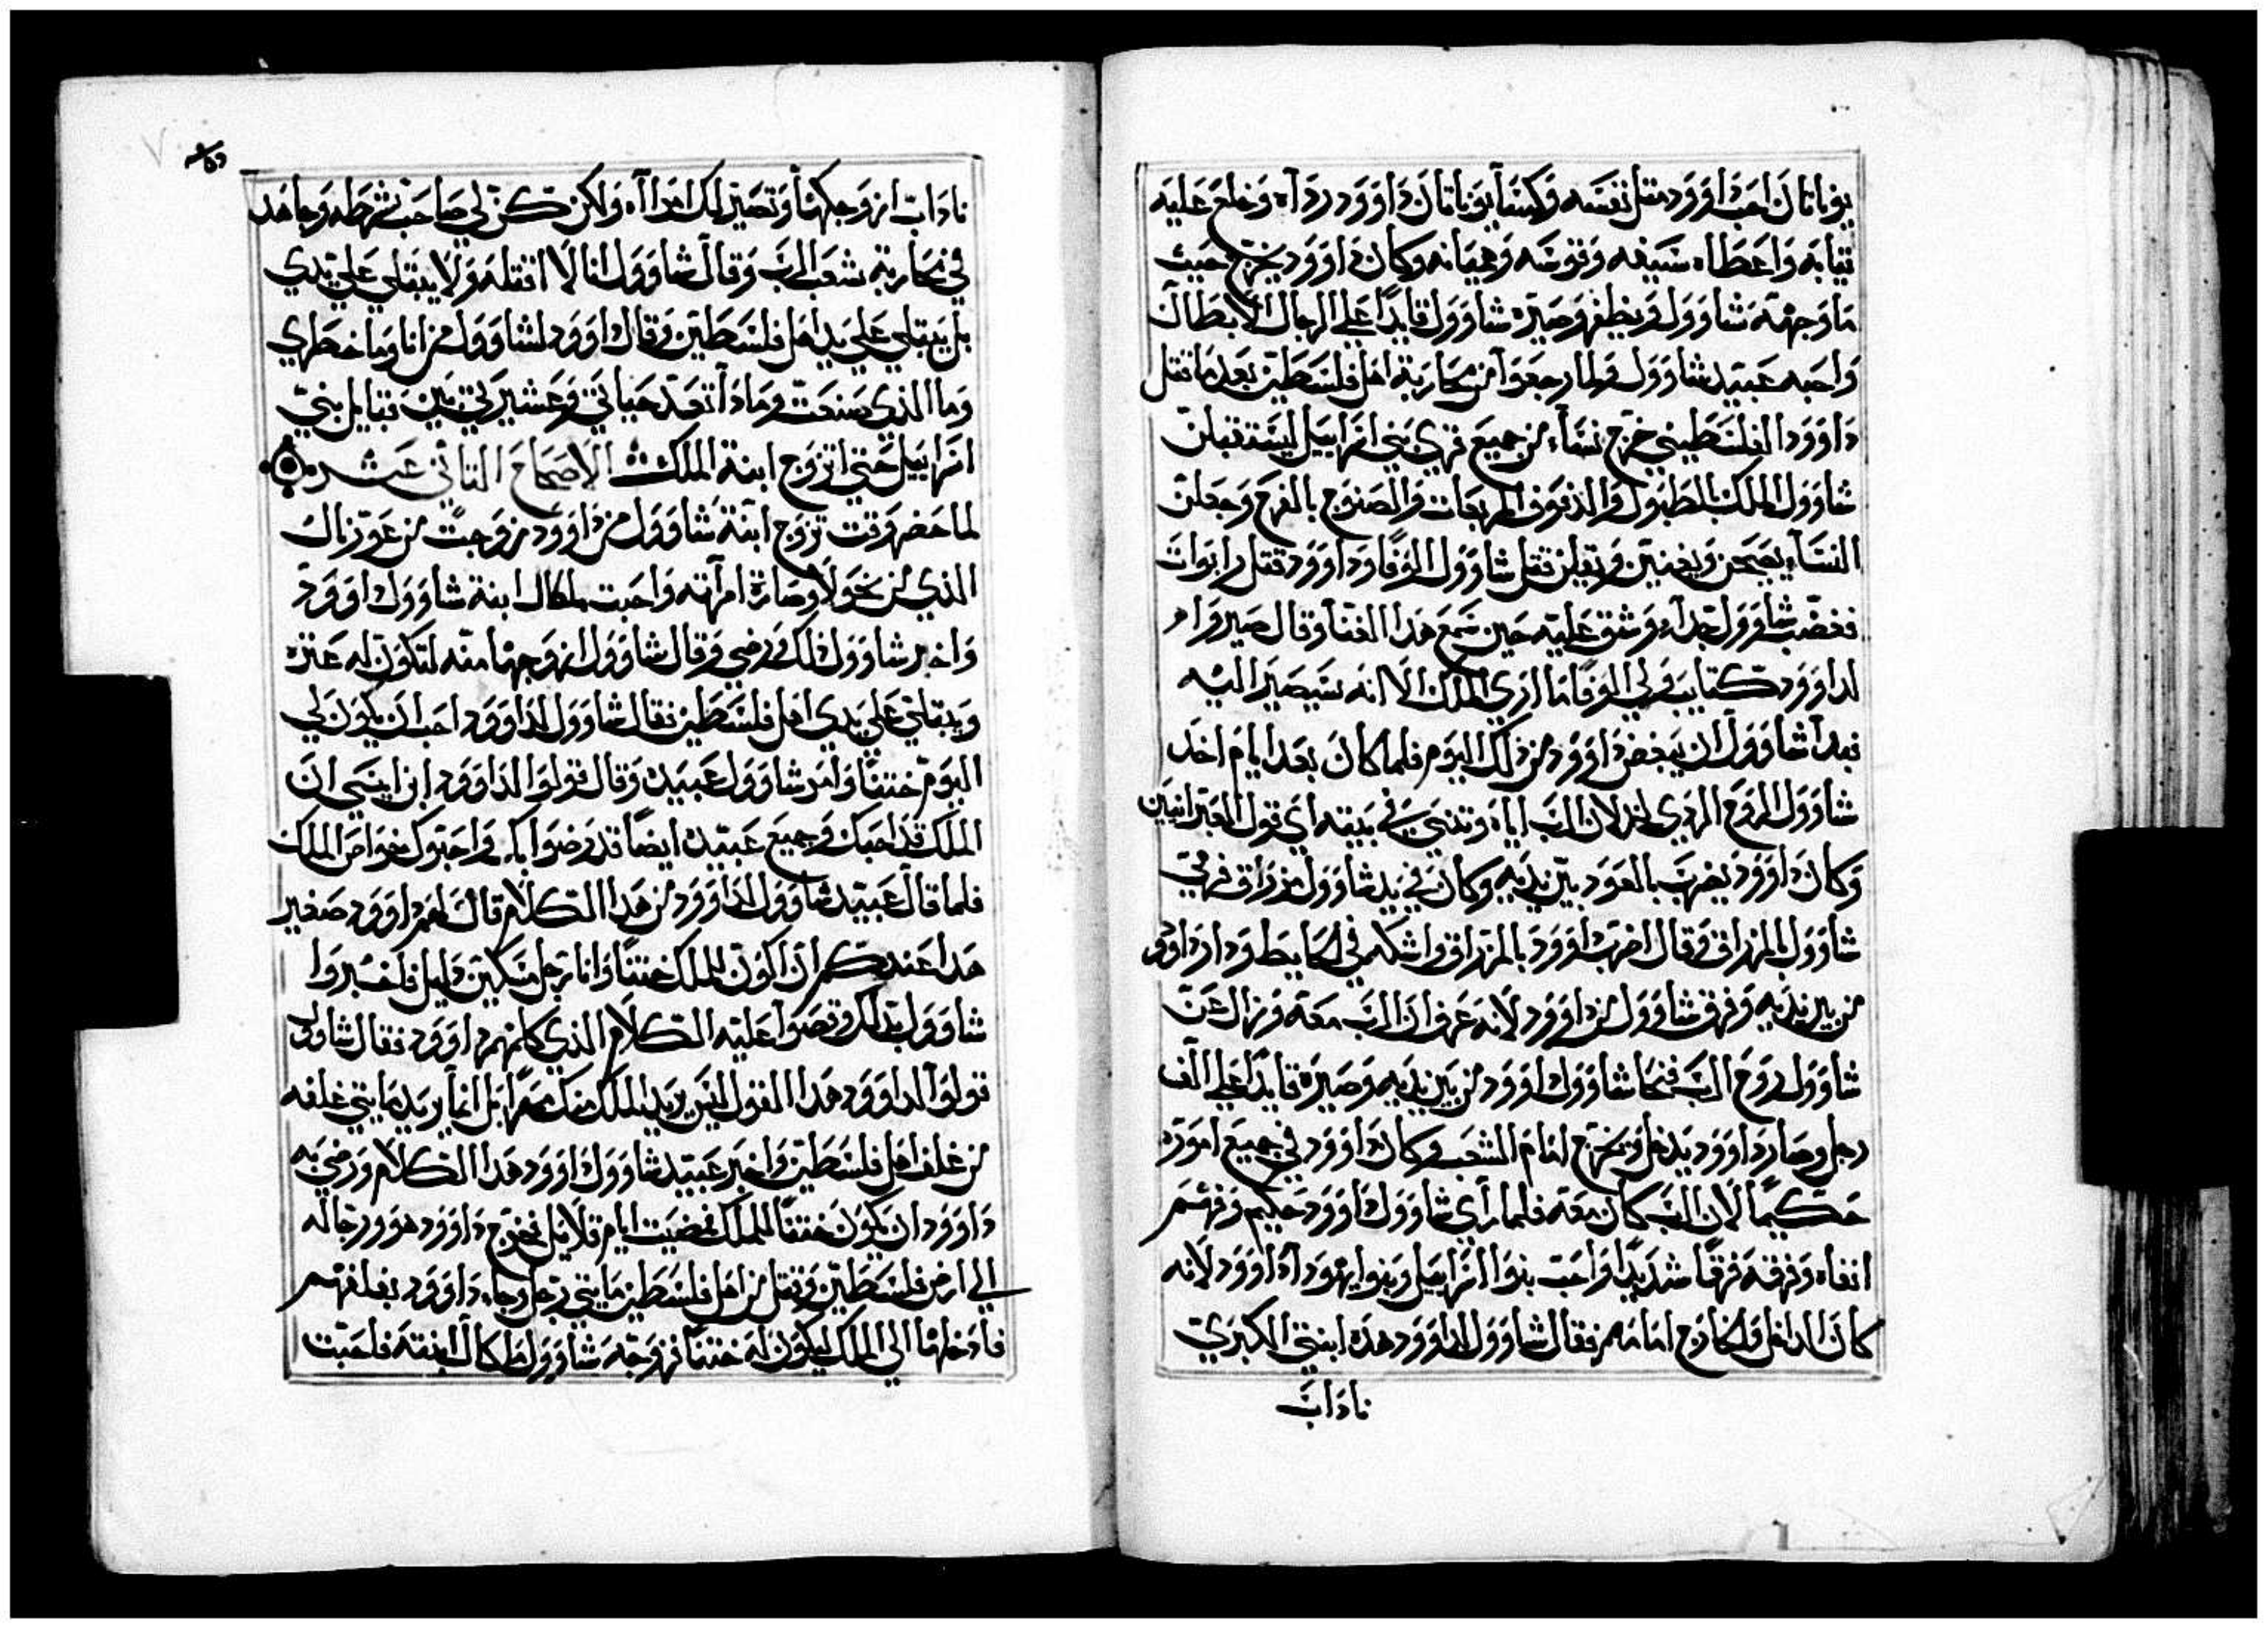 يوناثان احب داوود مثل نفسه وكسا يوناثان داوود رداه وخلع عليه
ثيابه واعطاه سيفه وقوسه وهميانه وكان داوود يخرج حيث
ما وجهته شاوول ويظفر وصيره شاوول قايدا علي الرجال الابطال
واحبه عبيد شاوول ولما رجعوا من محاربة اهل فلسطين بعد ما قتل
داوود الفلسطيني خرج نساء من جميع قري بني اسراييل ليستقبلن
شاوول الملك بالطبول والدفوف المربعات والصنوج بالفرح وجعلن
النساء يضحن ويغنين ويقلن قتل شاوول الوفا وداوود قتل رابوات
فغضب شاوول جدا وشق عليه حين سمع هدا الغنا وقال صيروا
لداوود كتايب ولي الوفا ما اري الملك الا انه سيصير اليه
فبدا شاوول ان يبغض داوود من ذلك اليوم فلما كان بعد ايام اخد
شاوول الروح الردي لخدلان الرب اياه وتنبي في بيته اي قول العبرانيين
وكان داوود يضرب بالعود بين يديه وكان في يد شاوول مزراق فرمي
شاوول بالمزراق وقال اضرب داوود بالمزراق واشكه في الحايط ودار داوود
من بين يديه وفرق شاوول من داوود لانه عرف ان الرب معه وزال عن
شاوول روح الرب فنحا شاوول داوود من بين يديه وصيره قايدا علي الف
رجل وصار داوود يدخل ويخرج امام الشعب وكان داوود في جميع اموره
حكيما لان الرب كان معه فلما راي شاوول داوود حكيم وفهم
اتقاه وفرقه فرقا شديدا واحب بنوا اسراييل وبنوا يهودا داوود لانه
كان الداخل والخارج امامهم فقال شاوول لداوود هده ابنتي الكبري
ناداب
ناداب ازوجكها وتصير لك امراه ولكن كن لي صاحب شرطه وجاهد
في محاربة شعب الرب وقال شاوول انا لا اقتله ولا يبتلي علي يدي
بل يبتلي علي يد اهل فلسطين وقال داوود لشاوول من انا وما خطري
وما الدي صنعت وما دا تعد حياتي وعشيرتي بين قبايل بني
اسراييل حتي اتزوج ابنة الملك الاصحاح التاني عشر
لما حضر وقت تزوج ابنة شاوول من داوود زوجت من عوزنال
الدي من نحولا وصارة امراته واحبت ملكال ابنة شاوول داوود
واخبر شاوول دلك ورضي وقال شاوول ازوجها منه لتكون له عتره
ويبتلي علي يدي اهل فلسطين فقال شاوول لداوود احب ان يكون لي
اليوم ختنا وامر شاوول عبيده وقال قولوا لداوود ان
الملك قد احبك وجميع عبيده ايضا قد رضوا بك واحبوك خواص الملك
فلما قال عبيد شاوول لداوود من هدا الكلام قال لهم داوود صغير
هدا عندكم ان اكون للملك ختنا وانا رجل مسكين دليل فاخبروا
شاوول بدلك وقصوا عليه الكلام الدي كلمهم داوود فقال شاوول
قولوا لداوود هدا القول ليس يريد الملك منك مهرا بل انما يريد مايتي غلفه
من غلف اهل فلسطين واخبر عبيد شاوول داوود هدا الكلام ورضي به
داوود ان يكون ختنا للملك فمضيت ايام قلايل فخرج داوود هو ورجاله
الي ارض فلسطين وقتل من اهل فلسطين مايتي رجل وجاء داوود بغلفهم
فادخلها الي الملك ليكون له ختنا فزوجه شاوول ملكال ابنته فاحبت